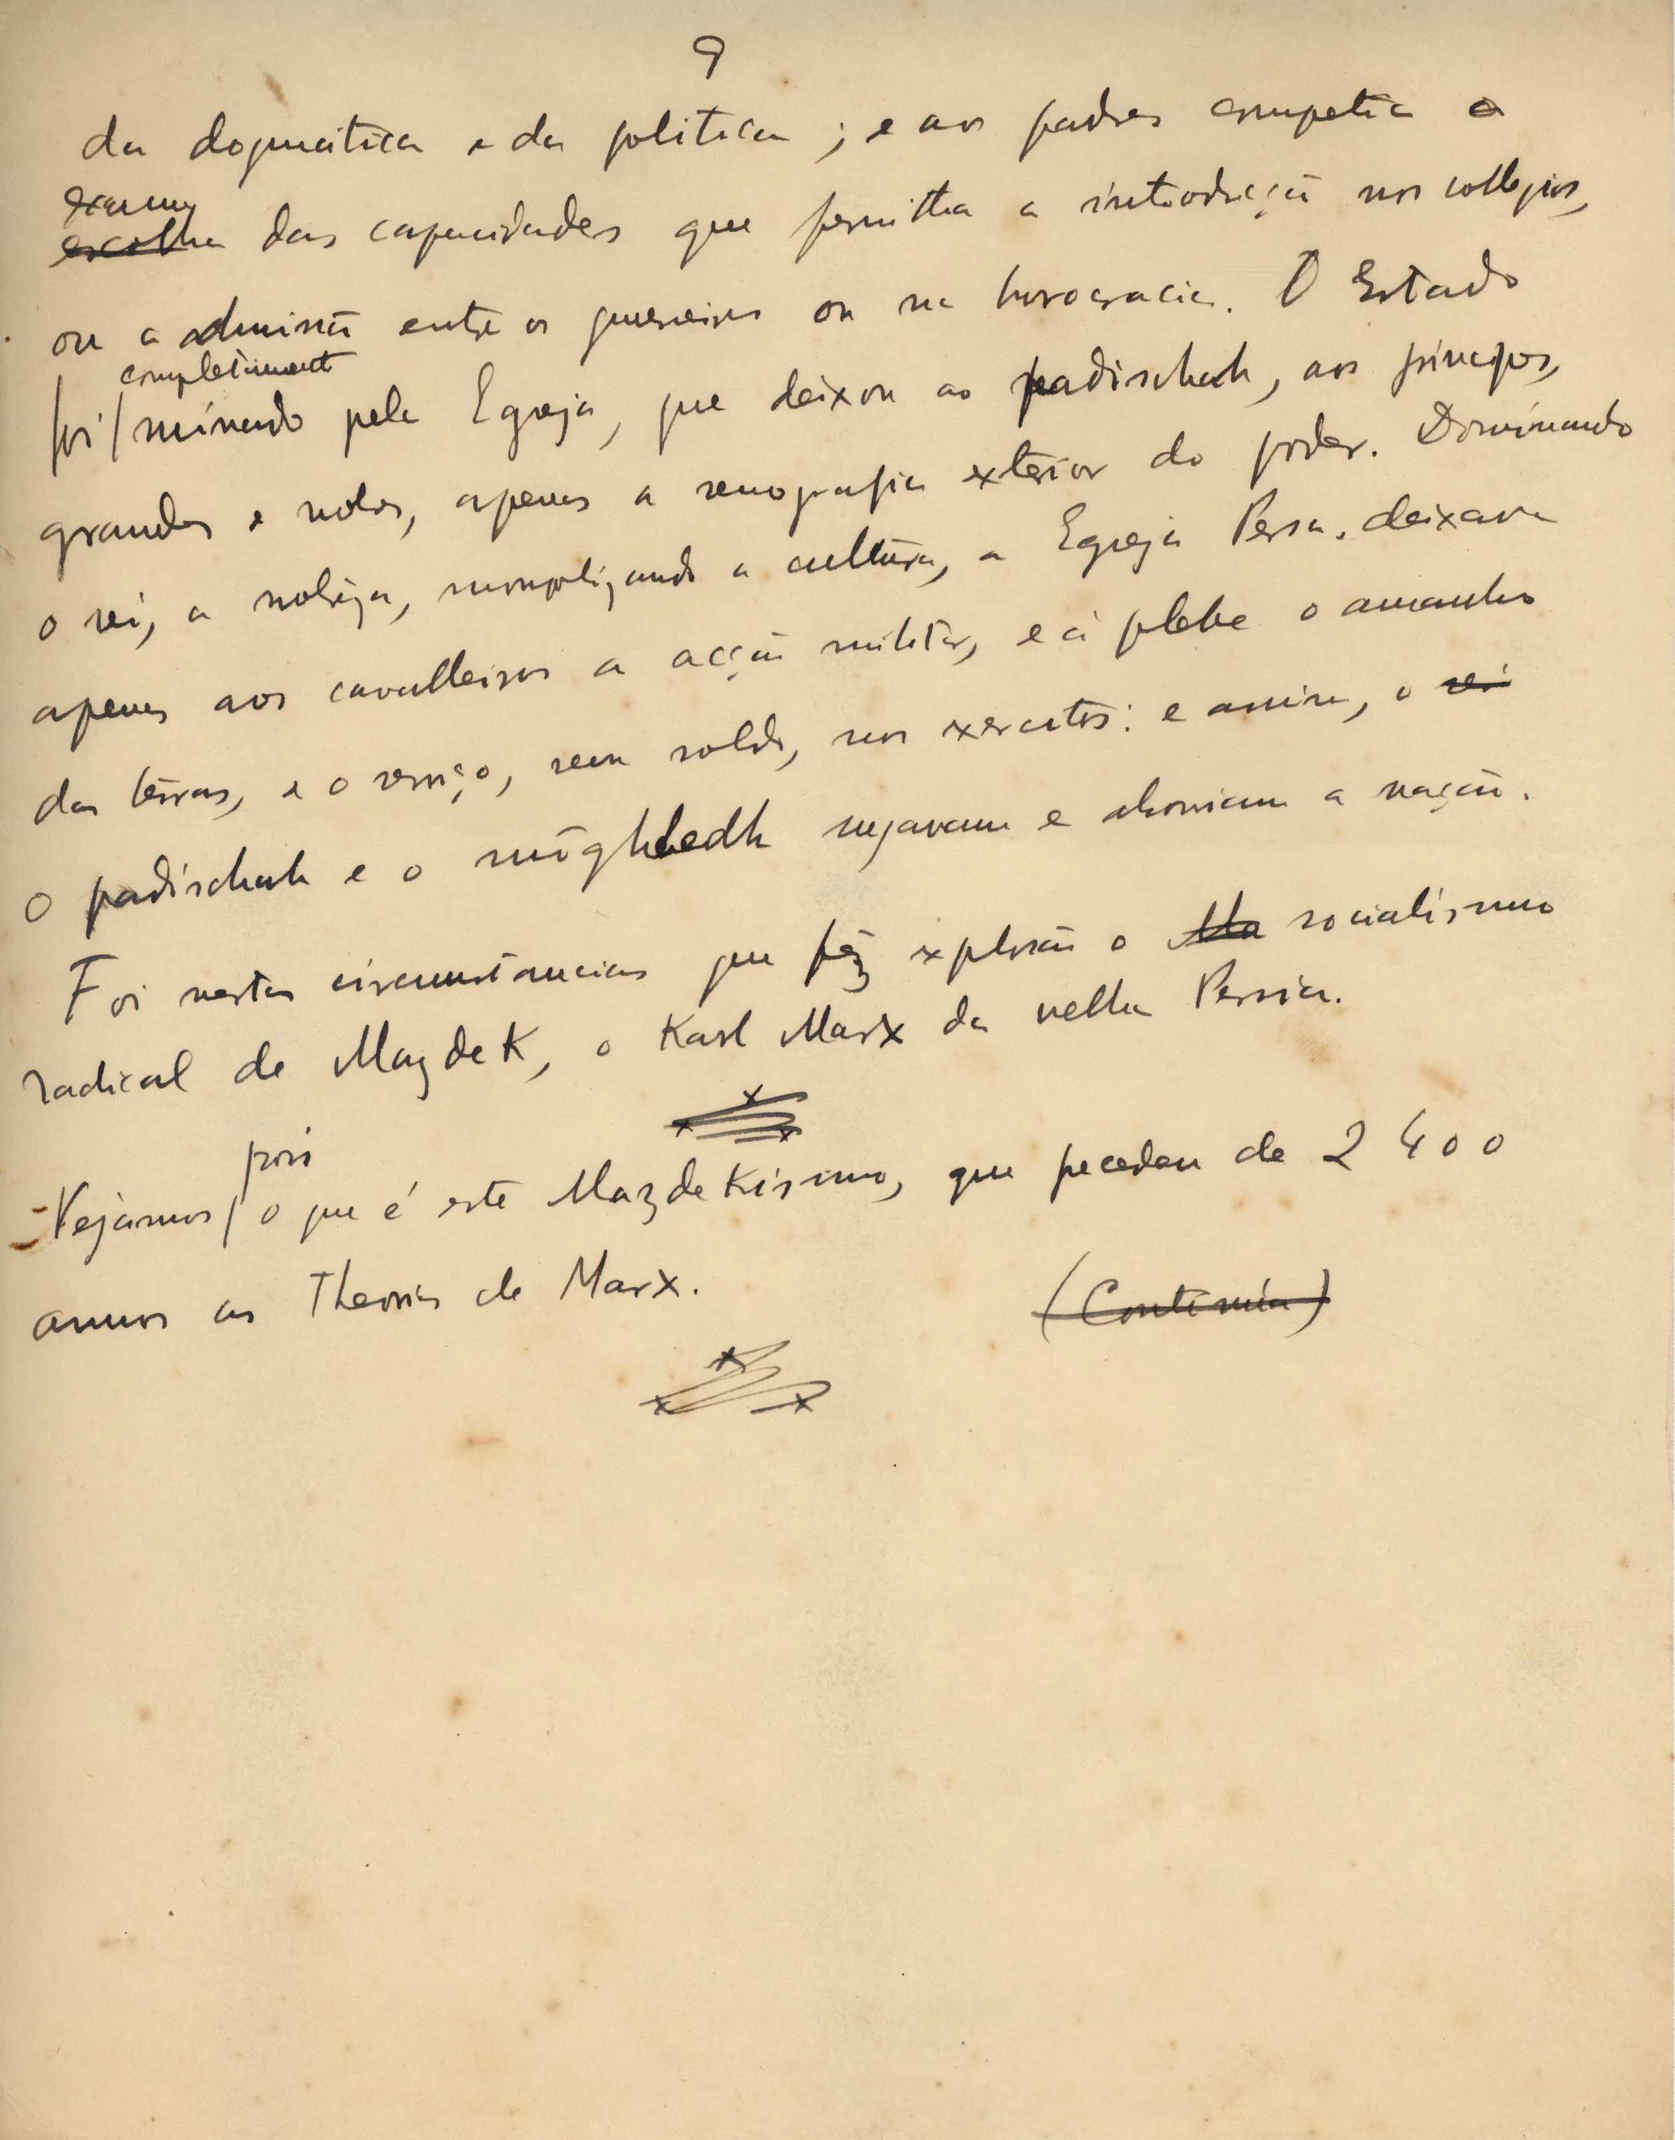 9
da dogmatica e da politica; e aos padres competia o
exame
escolha das capacidades que permittia a introducção nos collegios,
ou a admissão entre os guerreiros ou na burocracia. O Estado
completamente
foi minado pela Egreja, que deixou ao padischah, aos principes,
grandes e nobres, apenas a scenografia exterior do poder. Dominando
o rei, a nobreza, monopolizando a cultura, a Egreja Persa, deixava
apenas aos cavalleiros a acção militar, e á plebe o amanho
das terras, e o serviço, sem soldo, nos exercitos: e assim, o rei
o padischah e o môghbedh regavam e dormiam a nação.
Foi nestas circumstancias que fêz explosão o Ma socialismo
radical de Mazdek, o Karl Marx da velha Persia.
pois
-Vejamos o que é este Mazdekismo, que precedeu de 2400
annos as Theorias de Marx.
(Continúa)